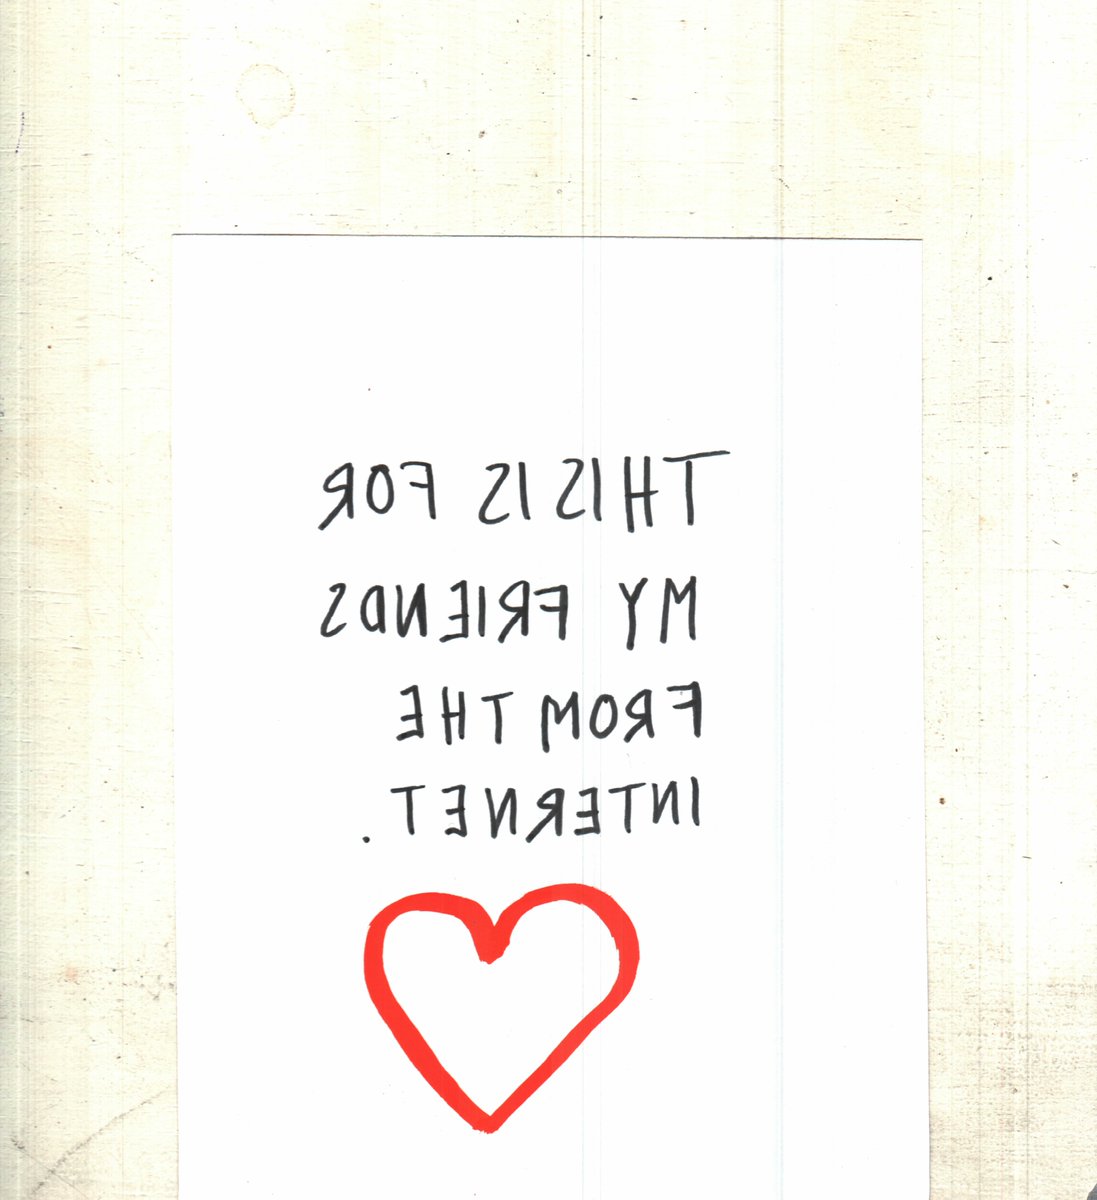 THIS IS FOR
MY FRIENDS
FROM THE
INTERNET.